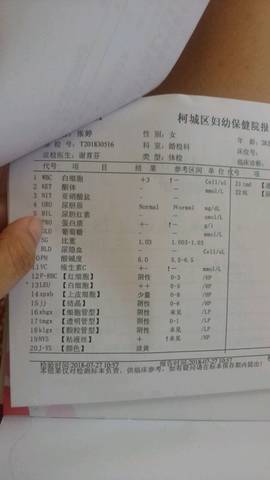 柯城区妇幼保健院报
姓 名：张婷 性 别：女 年 龄：
检 号：T201830516 科 室：婚检科 床位号：
送检医生：谢育芬 类 型：体检 临床诊断：
代号 项 目 结 果 参考区间 单 位 代号
1 WBC 白细胞 +3 ↑- Cell/ul
2 KET 酮体 - - mmol/L
3 NIT 亚硝酸盐 - -
4 URO 尿胆原 Normal Normal mg/dL
5 BIL 尿胆红素 - - umol/L
6 PRO 蛋白质 +- ↑- g/l
7 GLU 葡萄糖 - - mmol/L
8 SG 比重 1.03 1.003-1.03
9 BLD 尿隐血 - - Cell/ul
10 PH 酸碱度 6.0 5.5-6.5
11 VC 维生素C +- ↑- mmol/L
12 【红细胞】 阴性 0-3 /HP
13 LEU 【白细胞】 ++ 0-5 /HP
14 spxb 【上皮细胞】 少量 0-8 /HP
15 jj 【结晶】 阴性 0-6 /HP
16 xbgx 【细胞管型】 阴性 未见 /LP
17 tmgx 【透明管型】 阴性 0-1 /LP
18 klgx 【颗粒管型】 阴性 未见 /LP
19 NYS 【粘液丝】 + ↑未见 /HP
20 J-YS 【颜色】 淡黄
检验时间：2018-07-27 10:57 报告时间：2018-07-27 10:57
本结果仅对检测标本负责，供临床参考，如有疑问请在标本保存期内提出！